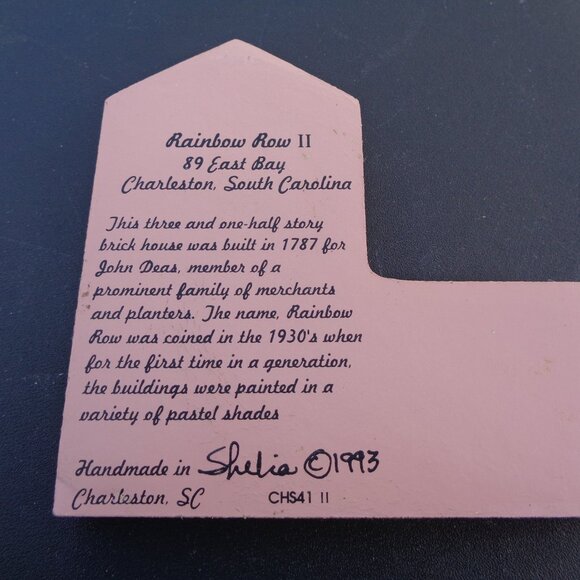 Rainbow Row II
89 East Bay
Charleston, South Carolina
This three and one-half story
brick house was built in 1787 for
John Deas, member of a
prominent family of merchants
and planters. The name, Rainbow
Row was coined in the 1930's when
for the first time in a generation,
the buildings were painted in a
variety of pastel shades
Handmade in Shelia ©1993
Charleston, SC CHS41 II